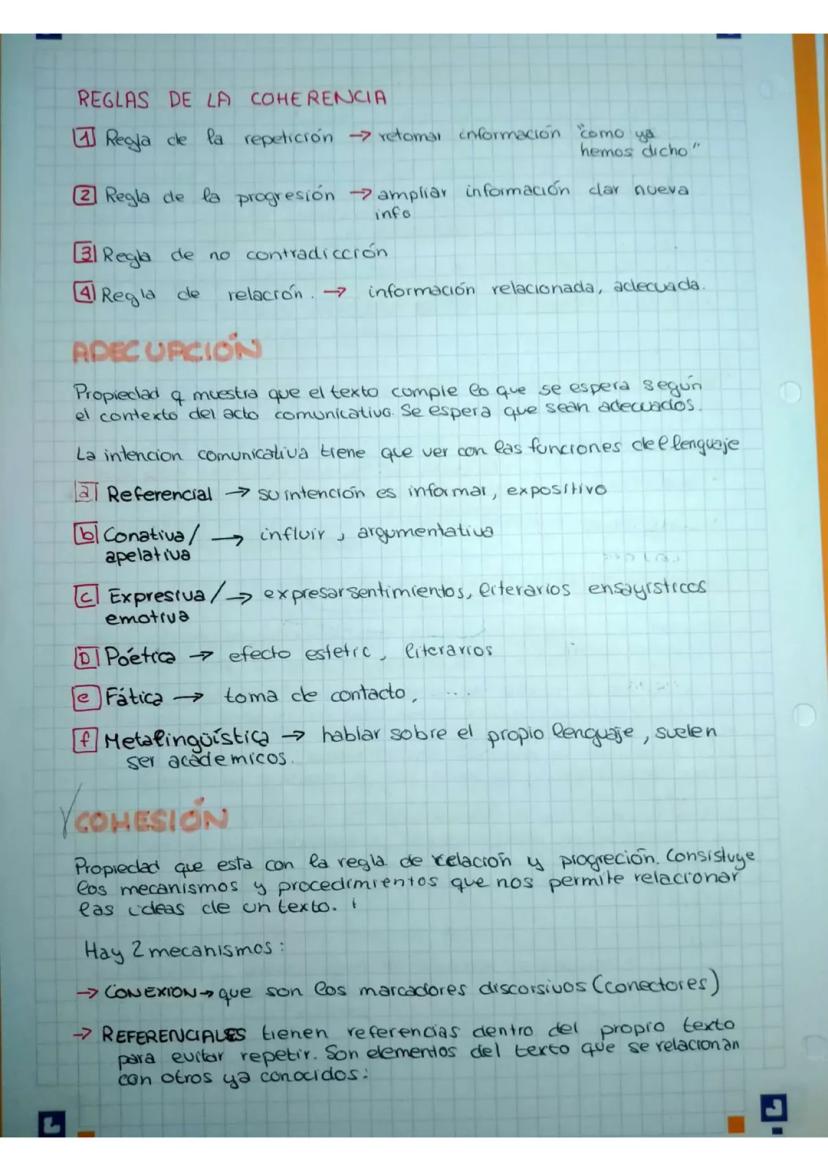 REGLAS DE LA COHERENCIA
1 Regla de la repetición → retomar información "como ya
hemos dicho"
2 Regla de la progresión → ampliar información dar nueva
info
3 Regla de no contradicción
4 Regla de relación. → información relacionada, adecuada.
ADECUACIÓN
Propiedad q muestra que el texto cumple lo que se espera según
el contexto del acto comunicativo. Se espera que sean adecuados.
La intencion comunicativa tiene que ver con las funciones del lenguaje
a Referencial → su intención es informar, expositivo
b Conativa/ → influir, argumentativa
apelativa
c Expresiva/ → expresar sentimientos, literarios ensayísticos
emotiva
D Poética → efecto estetic, literarios
e Fática → toma de contacto, ...
f Metalingüística → hablar sobre el propio lenguaje, suelen
ser académicos.
Y COHESIÓN
Propiedad que esta con la regla de relación y progreción. Consistuye
los mecanismos y procedimientos que nos permite relacionar
las ideas de un texto.
Hay 2 mecanismos:
→ CONEXION → que son los marcadores discorsivos (conectores)
→ REFERENCIALES tienen referencias dentro del propio texto
para evitar repetir. Son elementos del texto que se relacionan
con otros ya conocidos: